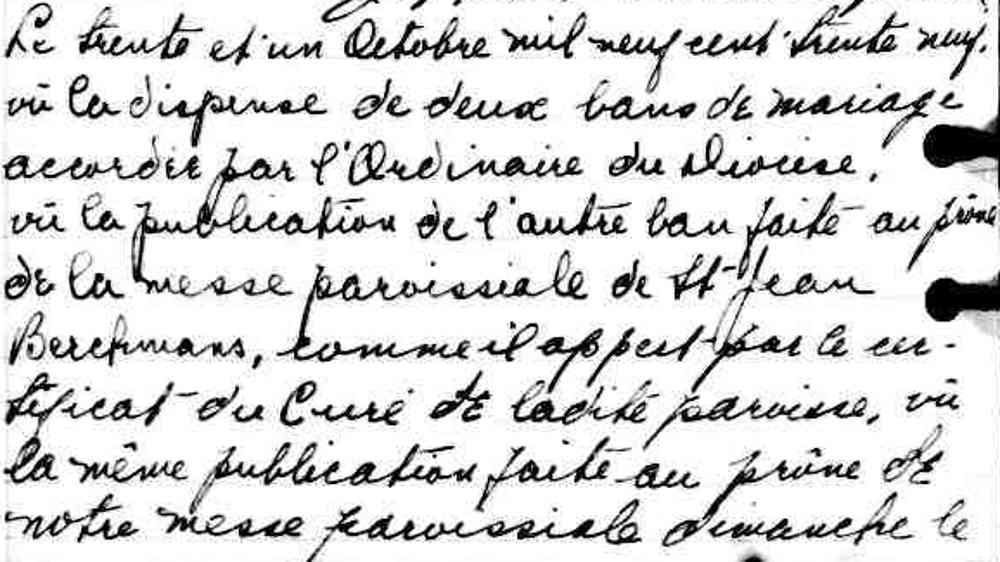 Le trente et un Octobre mil neuf cent trente neuf.
vû la dispense de deux bans de mariage
accordée par l'Ordinaire du Diocèse,
vû la publication de l'autre ban faite au prône
de la messe paroissiale de St Jean
Berchmans, comme il appert par le cer-
tificat du Curé de ladite paroisse, vû
la même publication faite au prône de
notre messe paroissiale dimanche le